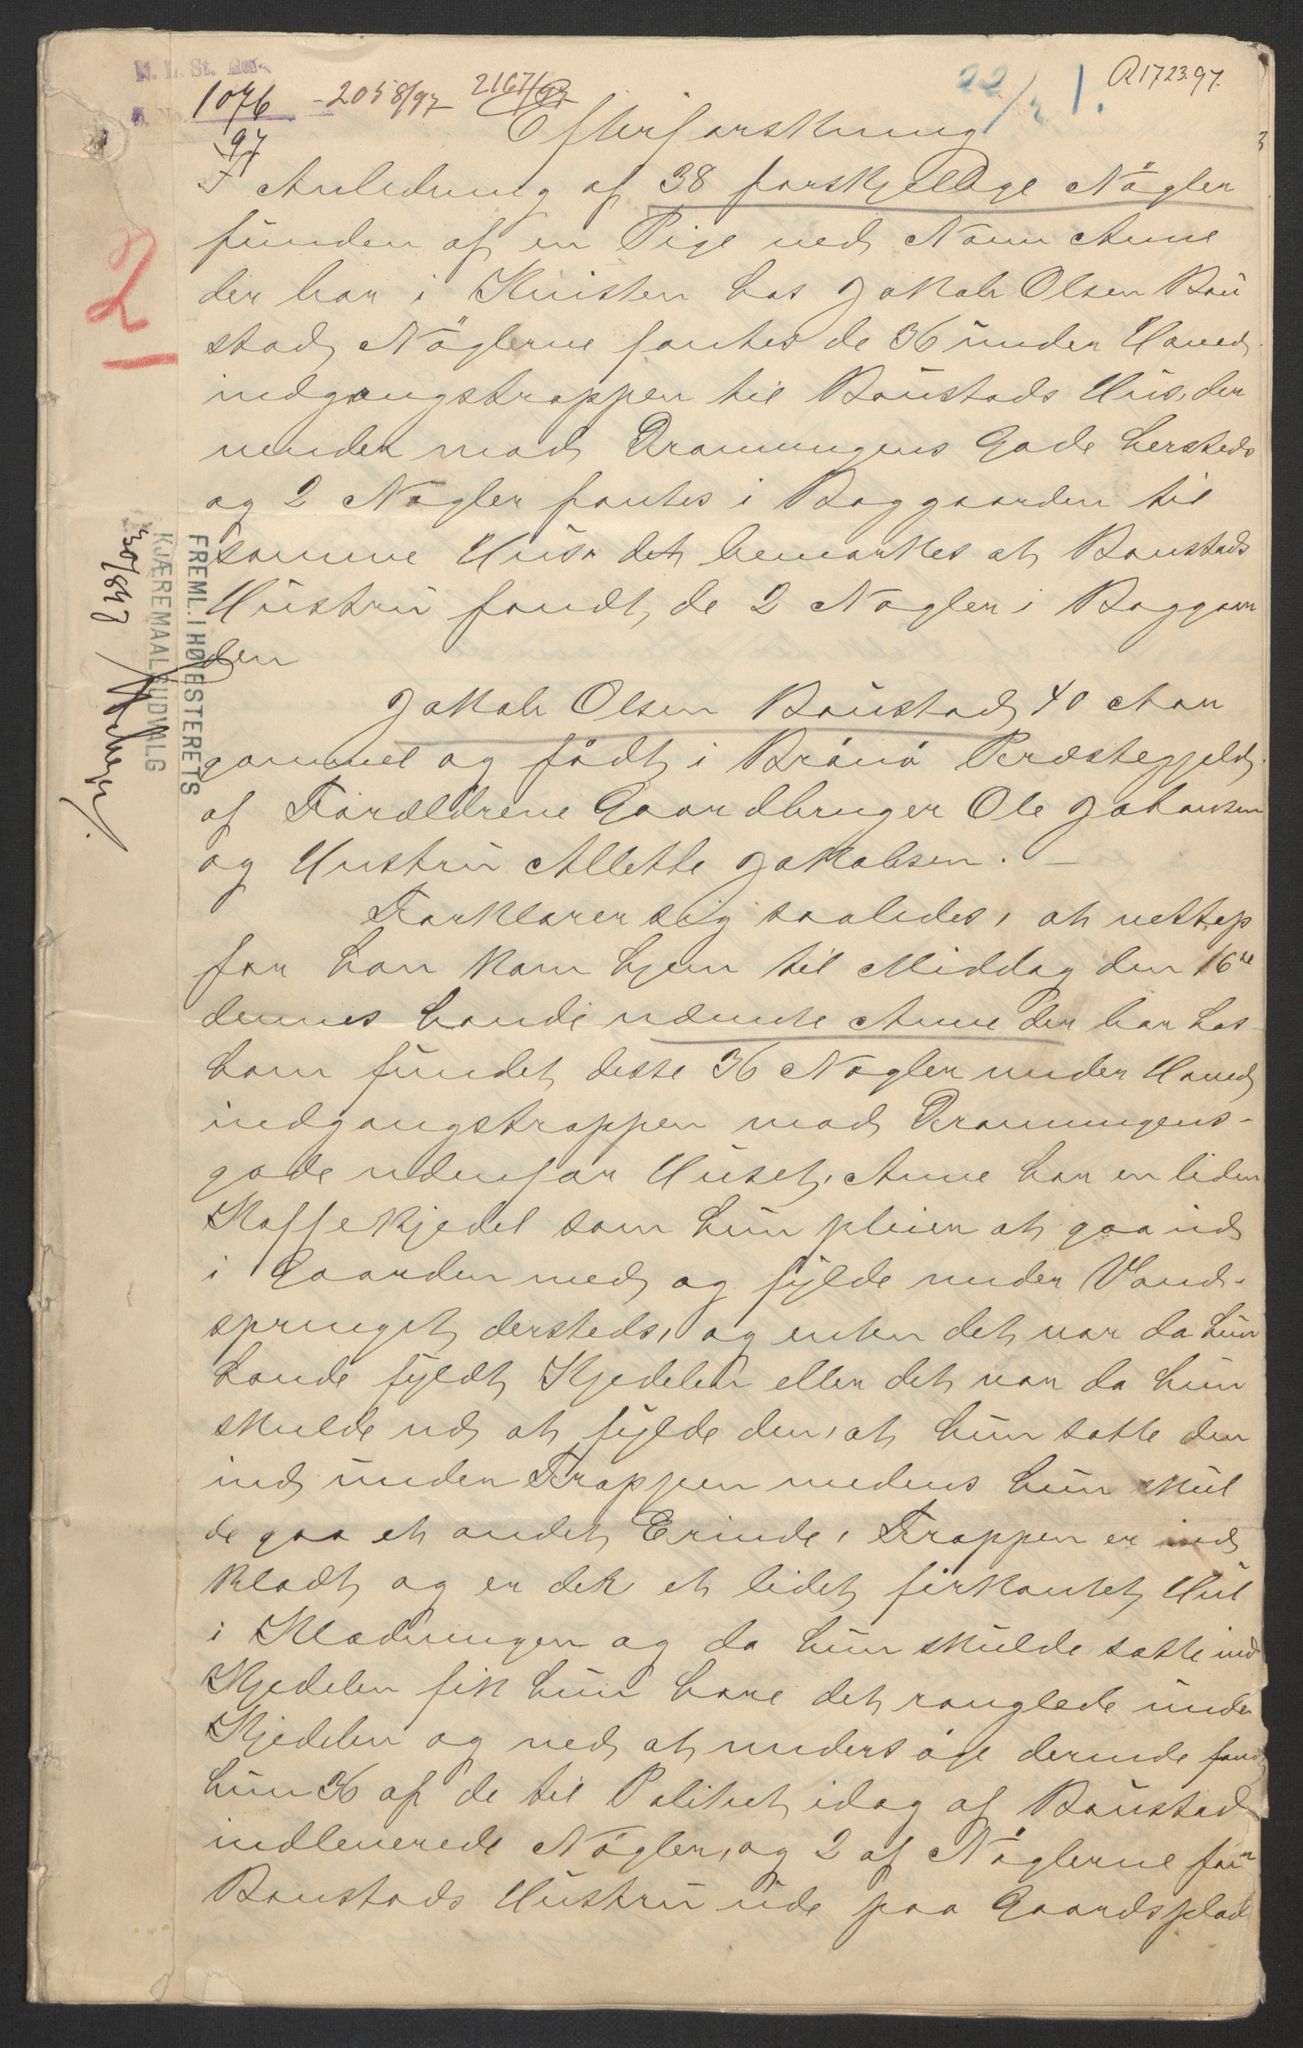 1076 - 2058/97 2167/97
97
22/4 1.
R 1723.97.
Efterforskning
I Anledning af 38 forskjellige Nögler
funden af en Pige ved Navn Anne
der bor i Kvisten hos Jakob Olsen Bau
stad, Nöglerne fantes de 36 under Hoved
indgangstrappen til Baustads Hus, der
vender mod Dronningens Gade hersteds
og 2 Nøgler fantes i Baggaarden til
samme Hus. det bemærkes at Baustads
Hustru fandt de 2 Nøgler i Baggaar
den
Jakob Olsen Baustad 40 Aar
gammel og født i Brönö Præstegjeld
af Forældrene Gaardbruger Ole Johansen
og Hustru Allette Jakobsen. —
Forklarer sig saaledes, at nettop
før han kom hjem til Middag den 16de
dennes havde nævnte Anne der bor hos
ham fundet disse 36 Nøgler under Hoved
indgangstrappen mod Dronningens-
gade udenfor Huset, Anne har en liden
Kaffekjedel som hun pleier at gaa ud
i Gaarden med og fylde under Vand-
springet dersteds, og enten det var da hun
havde fyldt Kjedelen eller det var da hun
skulde ud at fylde den, at hun satte den
ind under Trappen medens hun skul
de gaa et andet Erinde, Trappen er ind
klædt og er der et lidet firkantet Hul
i Klædningen og da hun skulde sætte ind
Kjedelen fik hun høre det ranglede under
Kjedelen og ved at undersöge derinde fandt
hun 36 af de til Politiet idag af Baustad
indleverede Nögler, og 2 af Nöglerne fan
Baustads Hustru ude paa Gaardsplad
2
FREML. I HØIESTERETS
KJÆREMAALSUDVALG
30/8 97